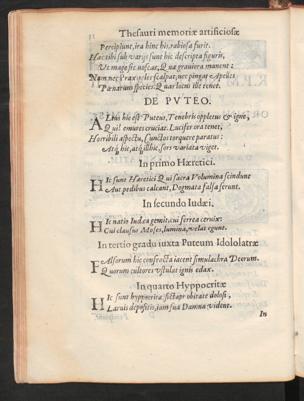 Thesauri memoriæ artificiosæ
Percipiunt, ira hinc his, rabiosa furit.
Hæc tibi sub varijs sunt hic descripta figuris,
Ut magè sic noscas, Quæ graviora manent:
Nam nec Praxiteles scalpat, nec pingat Apelles
Pœnarum species: Quas locus ille tenet.
DE PVTEO.
ALtus hic est Puteus, Tenebris oppletus et igne,
Quas omnes cruciat. Lucifer ora tenet,
Horribili aspectu, cunctos torquere paratus:
Atq; hic, atq; illic, sors variata viget.
In primo Hæretici.
HIc sunt Hæretici Qui sacra Volumina scindunt
Aut pedibus calcant, Dogmata falsa serunt.
In secundo Iudæi.
HIc natio Iudæa gemit, cui ferrea cervix:
Cui clausus Moses, lumina, velat
In tertio gradu iuxta Puteum Idololatræ
FAlsorum hic confracta iacent simulachra Deorum.
Quorum cultores ustulat ignis edax.
In quarto Hyppocritæ
HIc sunt hyppocritæ dolosi,
Larvis depositis, iam sua Damna vident.
In